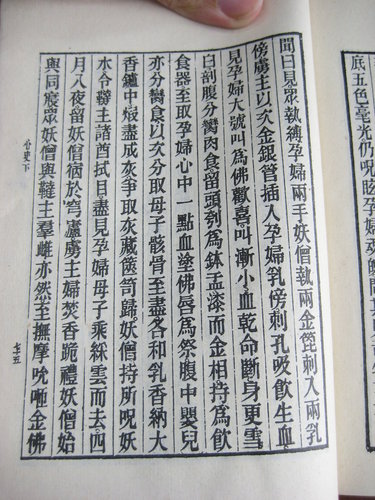 底五色毫光仍呪眩孕婦
聞曰見眾執縛孕婦兩手妖僧執兩金篦刺入兩乳
傍虜主以次金銀管插入孕婦乳傍刺孔吸飲生血
見孕婦大號叫爲佛歡喜叫漸小血乾命斷身更雪
白剖腹分臠肉食留頭刳爲鉢盂漆而金相持爲飲
食器至取孕婦心中一點血塗佛唇爲祭腹中嬰兒
亦分臠食以次分取母子骸骨至盡各和乳香納大
香鑪中煅盡成灰爭取灰藏篋笥歸妖僧持所呪妖
水令韃主諸酋拭目盡見孕婦母子乘綵雲而去四
月八夜留妖僧宿於穹廬虜主婦焚香跪禮妖僧始
與同寢眾妖僧與韃主羣雌亦然至撫摩吮咂金佛
心史下
七五